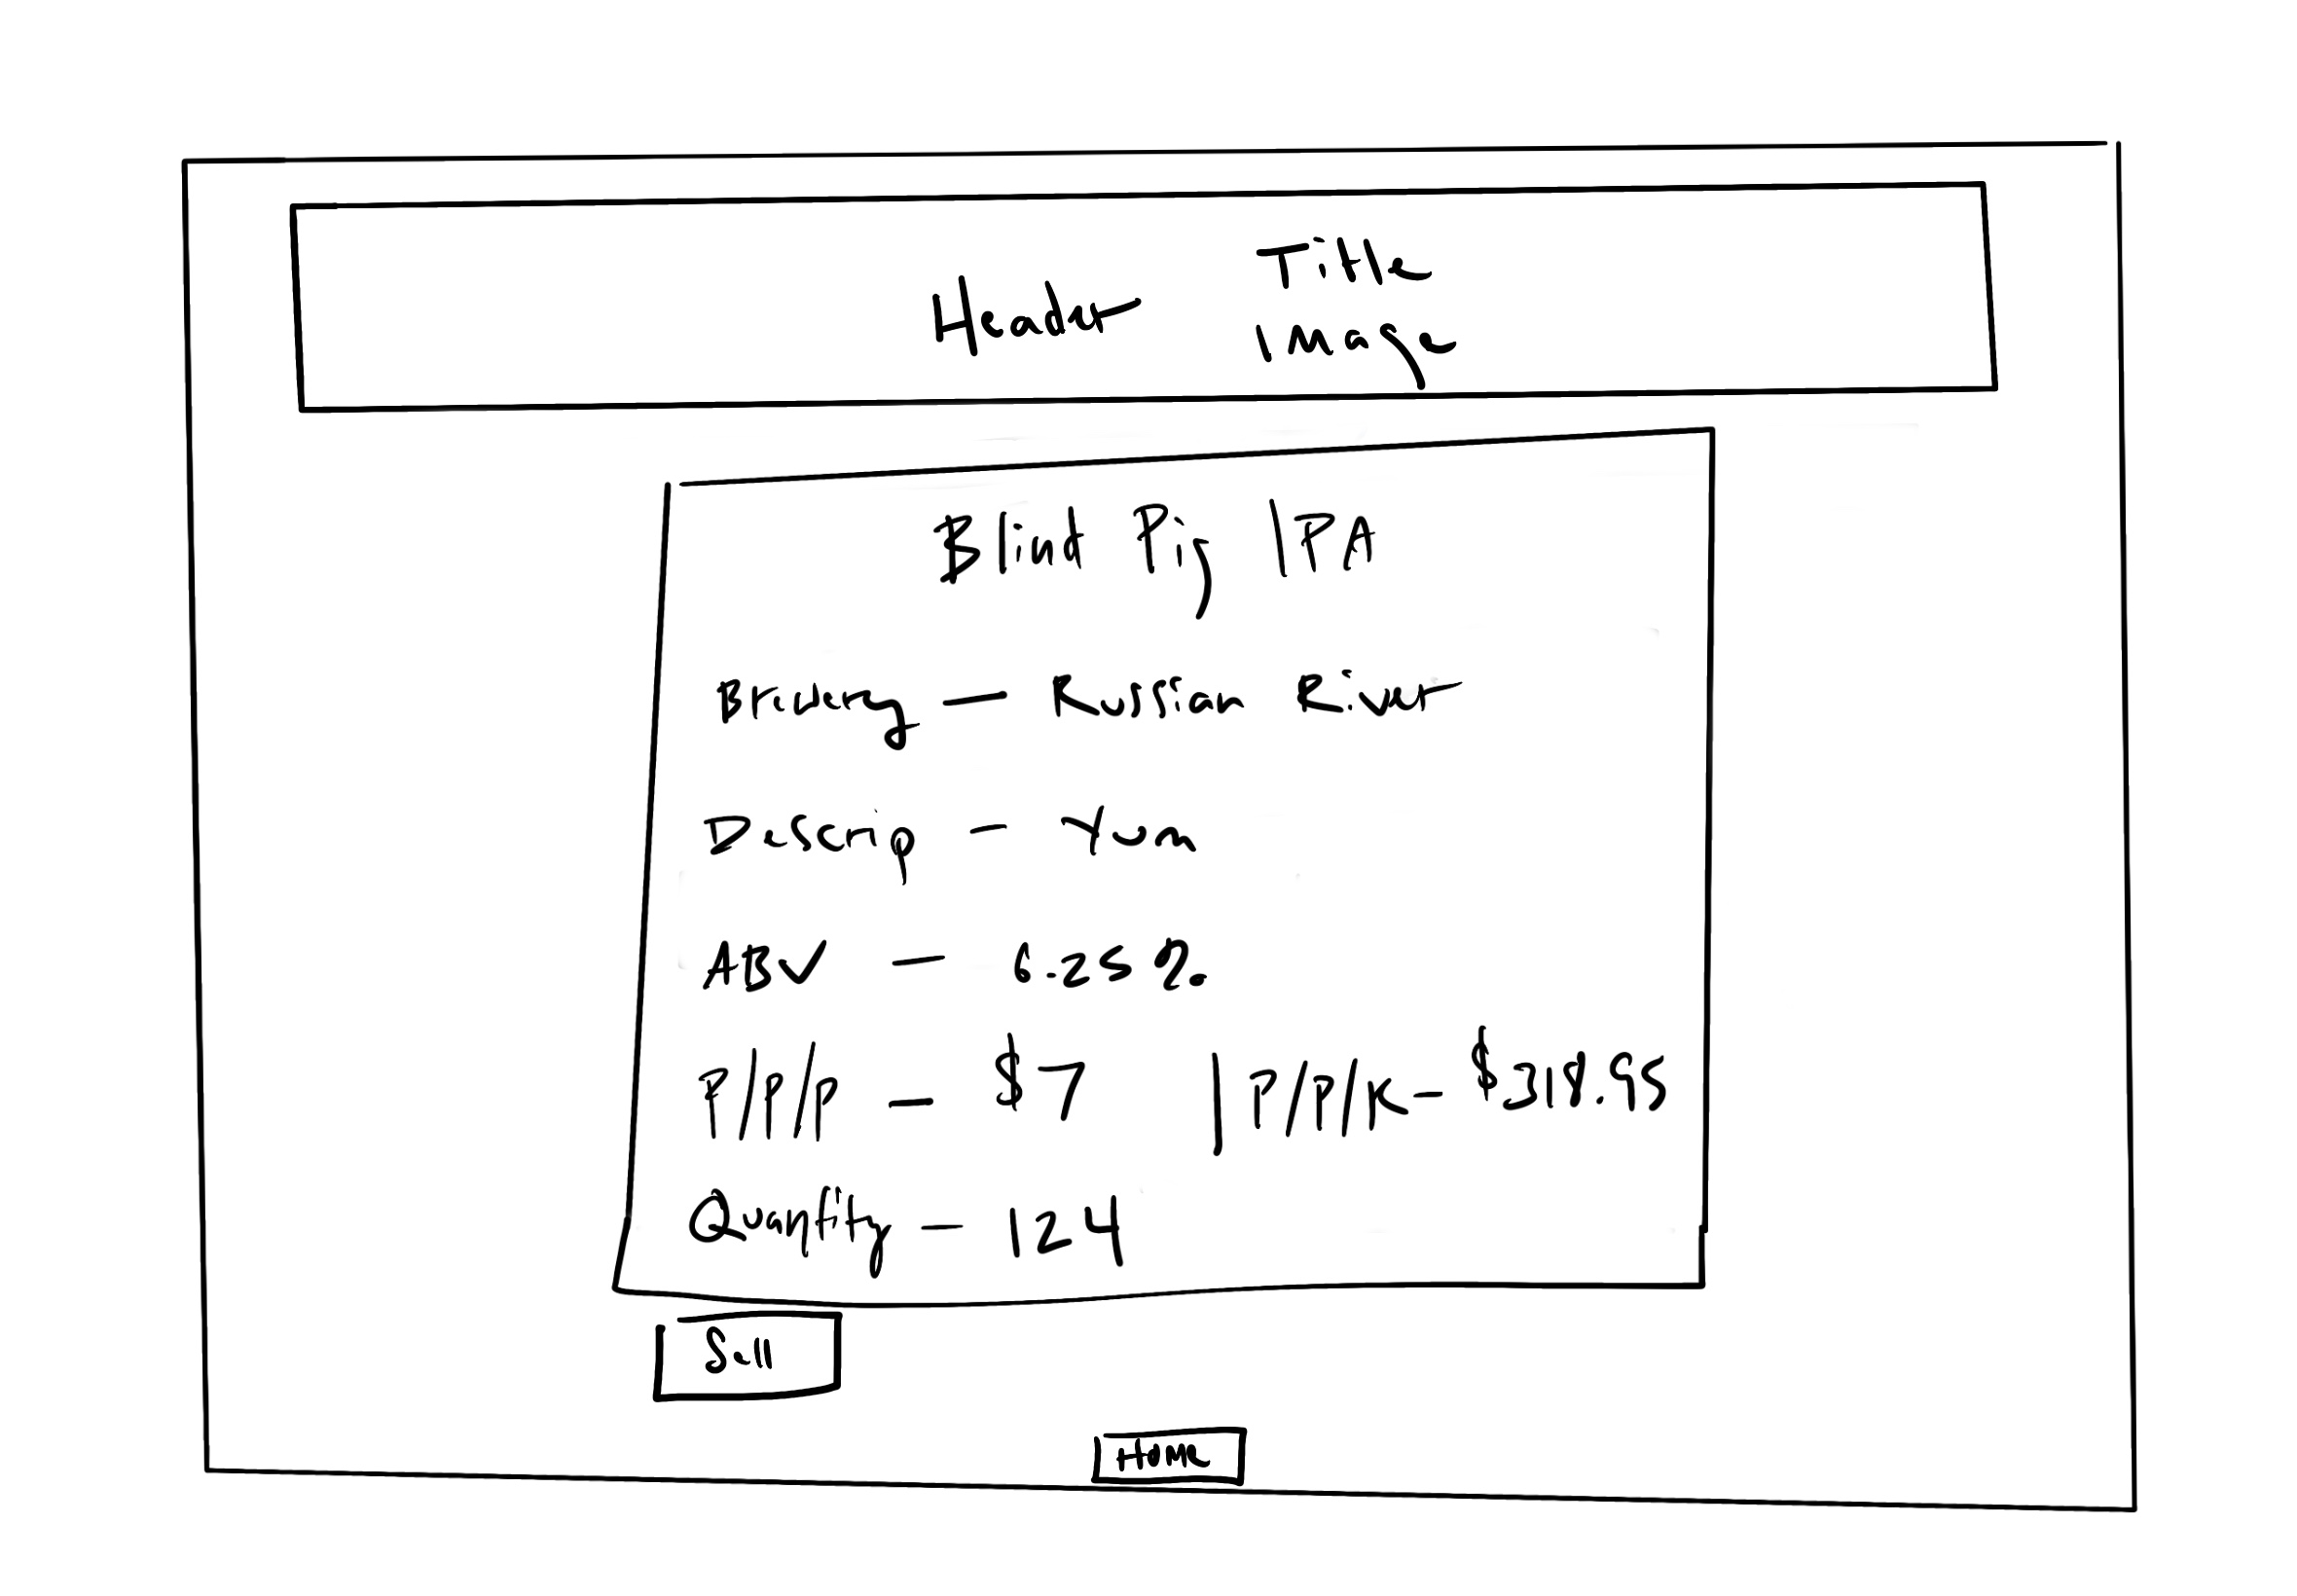 Header Title
Image
Blind Pig IPA
Brewery — Russian River
Descrip - Yum
ABV - 6.25%
P/P/P - $7 | P/P/K - $318.95
Quantity - 124
Sell
Home